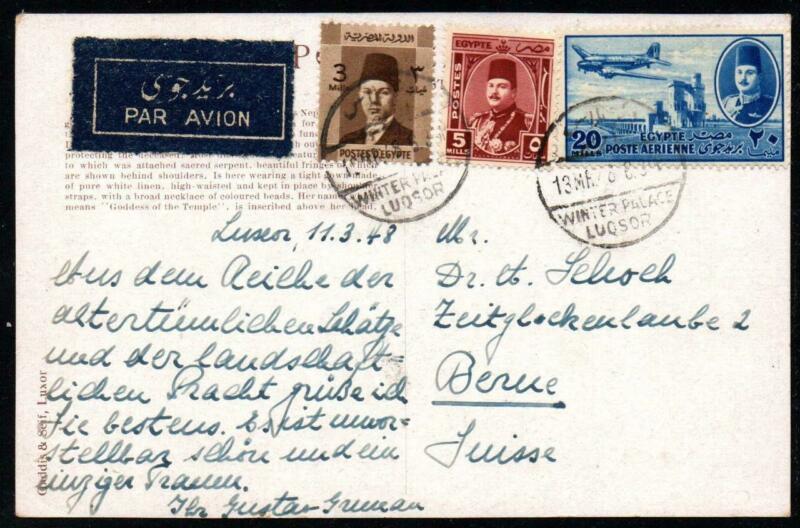 بريد جوى
PAR AVION
الدولة المصرية
3 ٣
Mills
POSTES D'EGYPTE
EGYPTE مصر
POSTES
5 ٥
MILLS
20 ٢٠
MILLS
EGYPTE مصر
POSTE AERIENNE بريد جوى
WINTER PALACE
LUQSOR
13 MR
WINTER PALACE
LUQSOR
protecting the deceased.
to which was attached sacred serpent, beautiful fringes of which
are shown behind shoulders. Is here wearing a tight gown made
of pure white linen, high-waisted and kept in place by shoulder
straps, with a broad necklace of coloured beads. Her name
means "Goddess of the Temple", is inscribed above her head.
Gaddis & Seif, Luxor
Luxor, 11.3.48
Aus dem Reiche der
altertümlichen Schätze
und der landschaft=
lichen Pracht grüße ich
Sie bestens. Es ist unvor=
stellbar schön und ein
einziger Traum.
Ihr Gustav
Mr.
Dr. A. Schoch
Zeitglockenlaube 2
Berne
Suisse